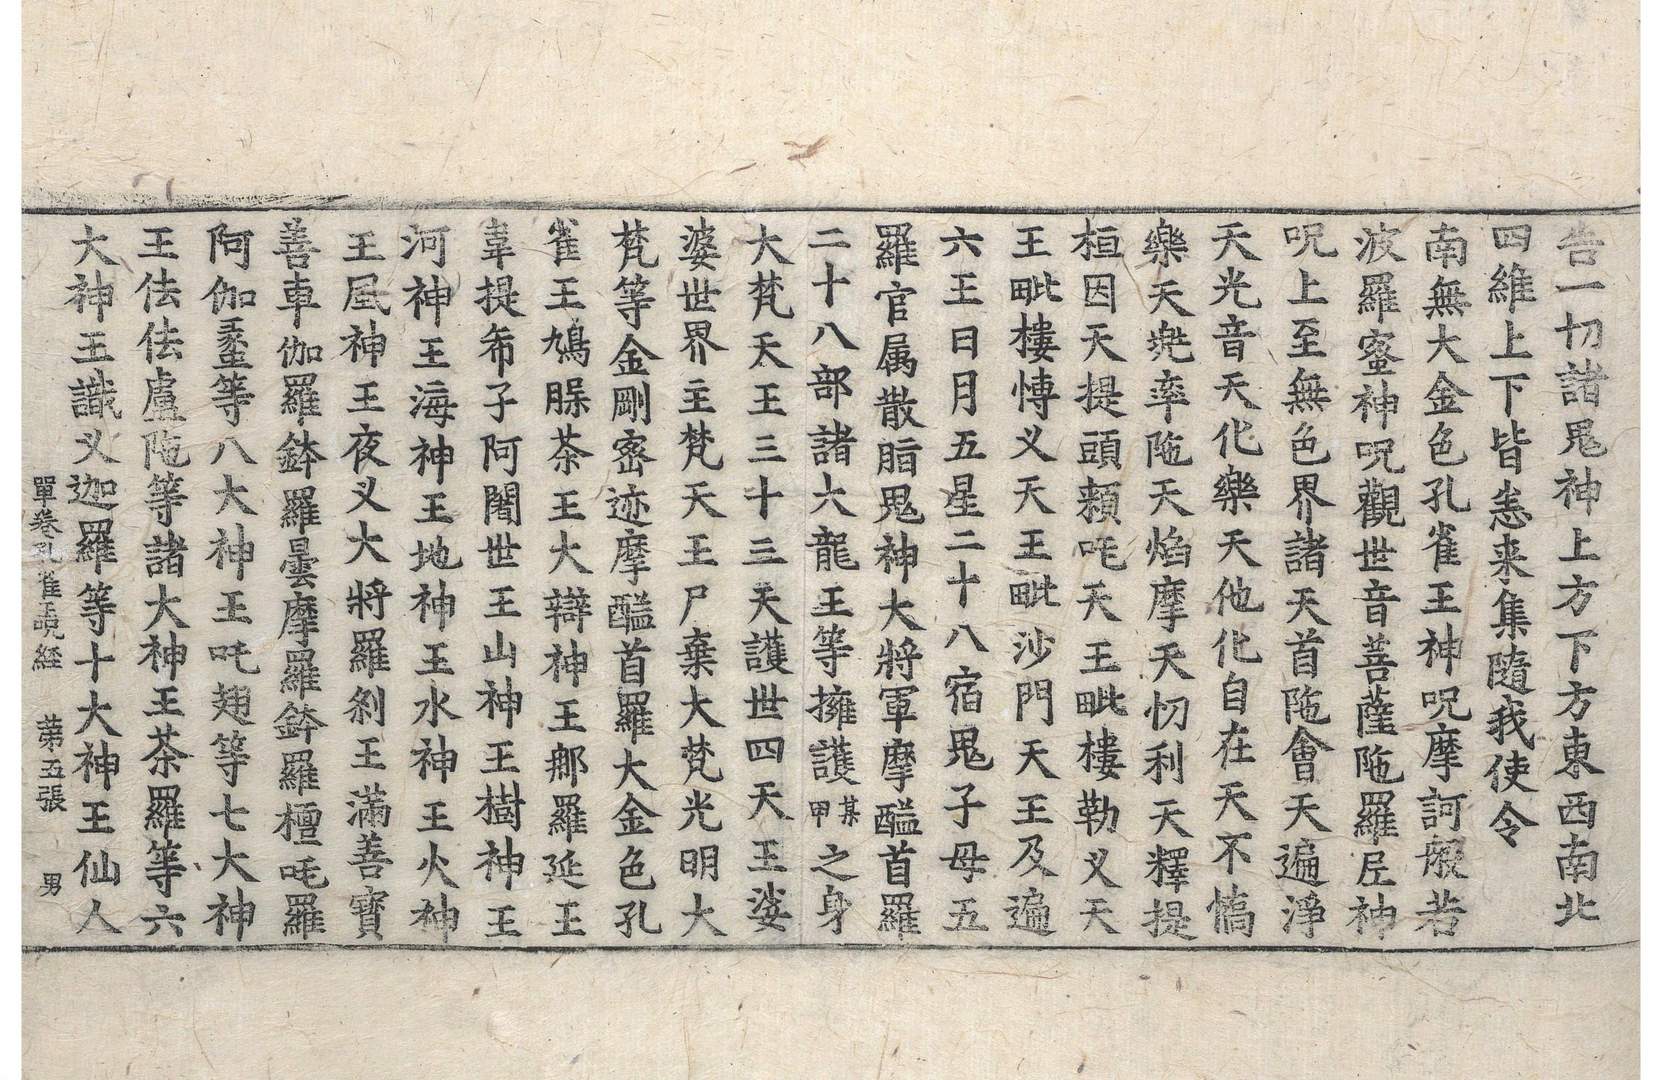 告一切諸鬼神上方下方東西南北
四維上下皆悉来集隨我使令
南無大金色孔雀王神呪摩訶般若
波羅蜜神呪觀世音菩薩陁羅尼神
呪上至無色界諸天首陁會天遍淨
天光音天化樂天他化自在天不憍
樂天兠率陁天焰摩天忉利天釋提
桓因天提頭頼吒天王毗樓勒义天
王毗樓慱义天王毗沙門天王及遍
六王日月五星二十八宿鬼子母五
羅官属散脂鬼神大將軍摩醯首羅
二十八部諸大龍王等擁護某甲之身
大梵天王三十三天護世四天王娑
婆世界主梵天王尸棄大梵光明大
梵等金剛密迹摩醯首羅大金色孔
雀王鳩脵茶王大辯神王那羅延王
韋提希子阿闍世王山神王樹神王
河神王海神王地神王水神王火神
王風神王夜义大將羅刹王滿善寶
善車伽羅鉢羅曇摩羅鉢羅檀吒羅
阿伽䖽等八大神王吒翅等七大神
王佉佉盧陁等諸大神王茶羅等六
大神王識义迦羅等十大神王仙人
單卷孔雀王呪経 苐五張 男